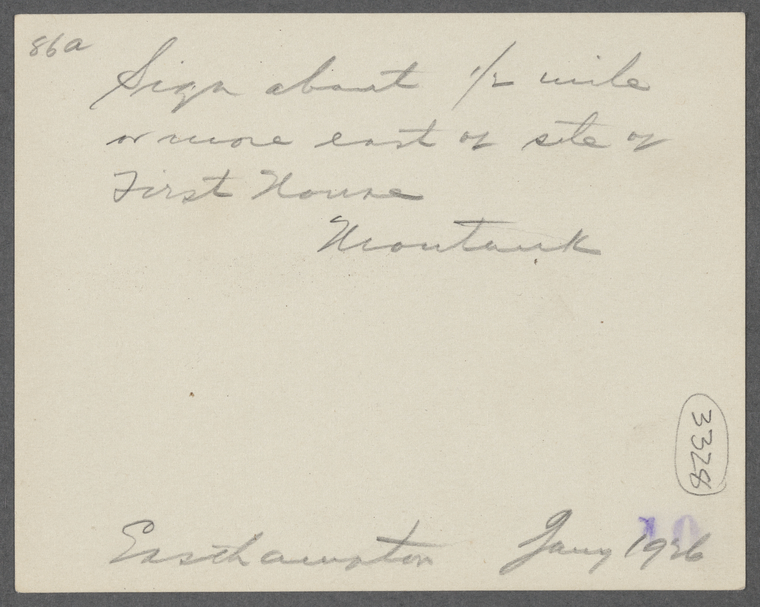 86a
Sign about 1/2 mile
or more east of site of
First House
Montauk
3328
Easthampton Jany 1926
10